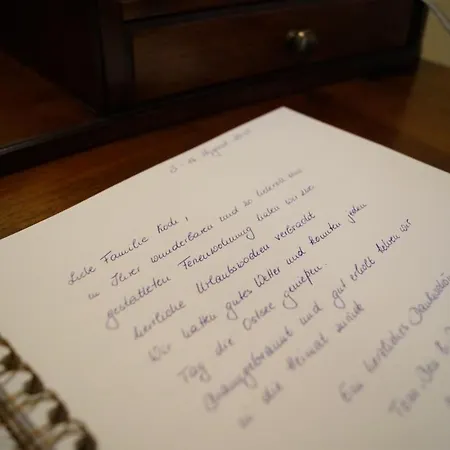 August
Liebe Familie Koch,
in Ihrer wunderbaren und so liebevoll
gestalteten Ferienwohnung haben wir
herrliche Urlaubswochen verbracht.
Wir hatten gutes Wetter und konnten jeden
Tag die Ostsee genießen.
Braungebrannt und gut erholt fahren wir
in die Heimat zurück
Ein herzliches Dankeschön